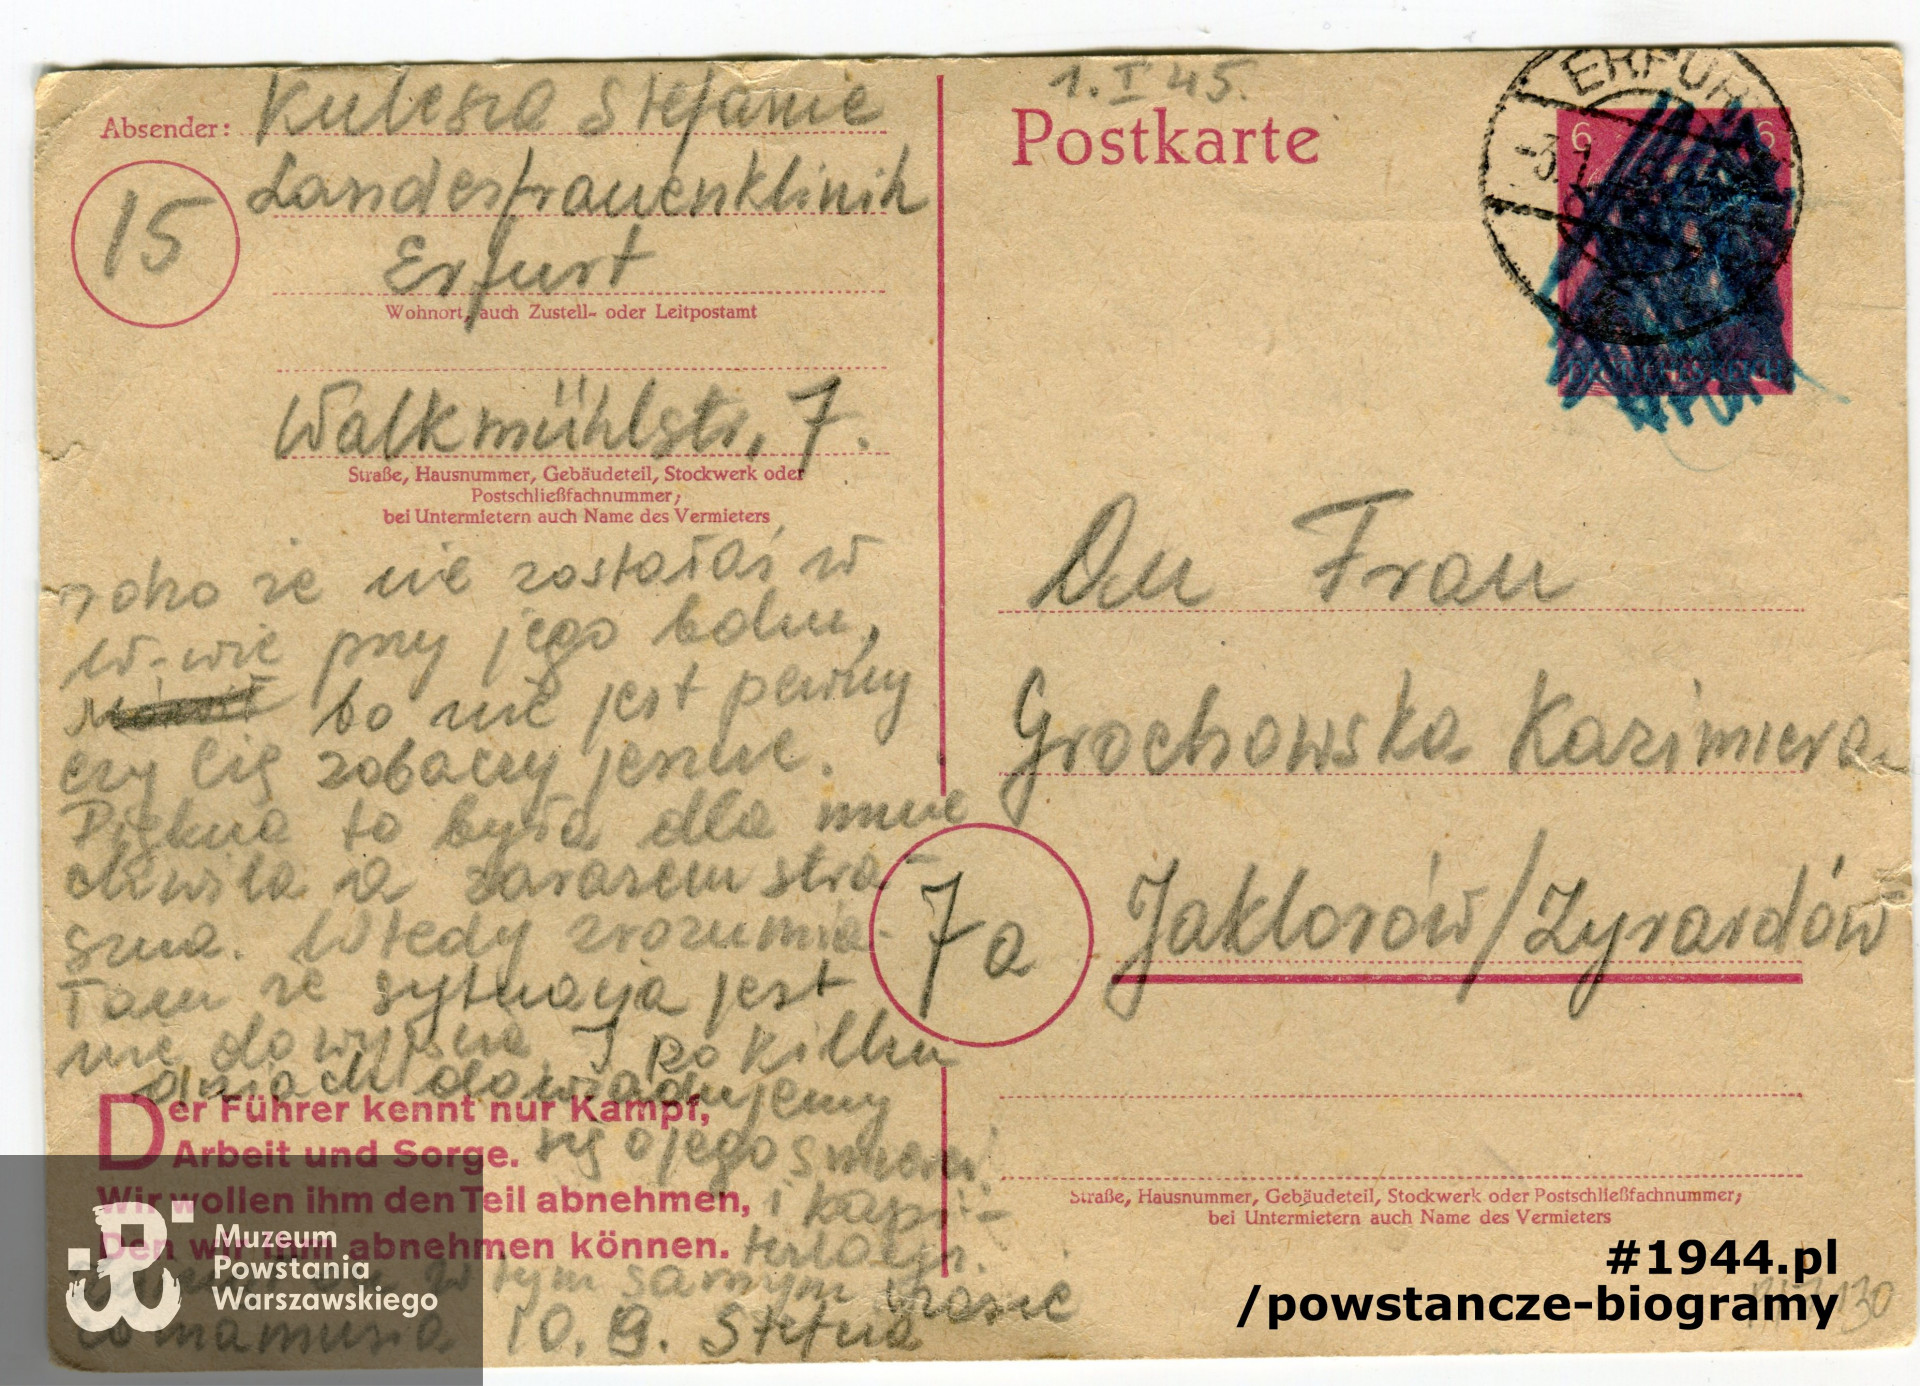 1. I 45.
Absender: Kulesza Stefanie
Landesfrauenklinik
15
Erfurt
Wohnort, auch Zustell- oder Leitpostamt
Walkmühlstr. 7.
Straße, Hausnummer, Gebäudeteil, Stockwerk oder
Postschließfachnummer;
bei Untermietern auch Name des Vermieters
że nie zostałaś w
W-wie przy jego boku,
bo nie jest pewny
czy Cię zobaczy jeszcze.
Piękna to była dla mnie
chwila a zarazem stra-
szna. Wtedy zrozumia-
łam że sytuacja jest
nie do wyjścia. I po kilku
dniach dowiadujemy
się o jego śmierci
i kapi-
tulacji.
w tym samym czasie
co mamusia 10. 9. Stefna
Der Führer kennt nur Kampf,
Arbeit und Sorge.
Wir wollen ihm den Teil abnehmen,
Den wir ihm abnehmen können.
Postkarte
ERFURT
6 6
An Frau
Grochowska Kazimiera
7a
Jaktorów/Żyrardów
Straße, Hausnummer, Gebäudeteil, Stockwerk oder Postschließfachnummer;
bei Untermietern auch Name des Vermieters
Muzeum
Powstania
Warszawskiego
#1944.pl
/powstancze-biogramy